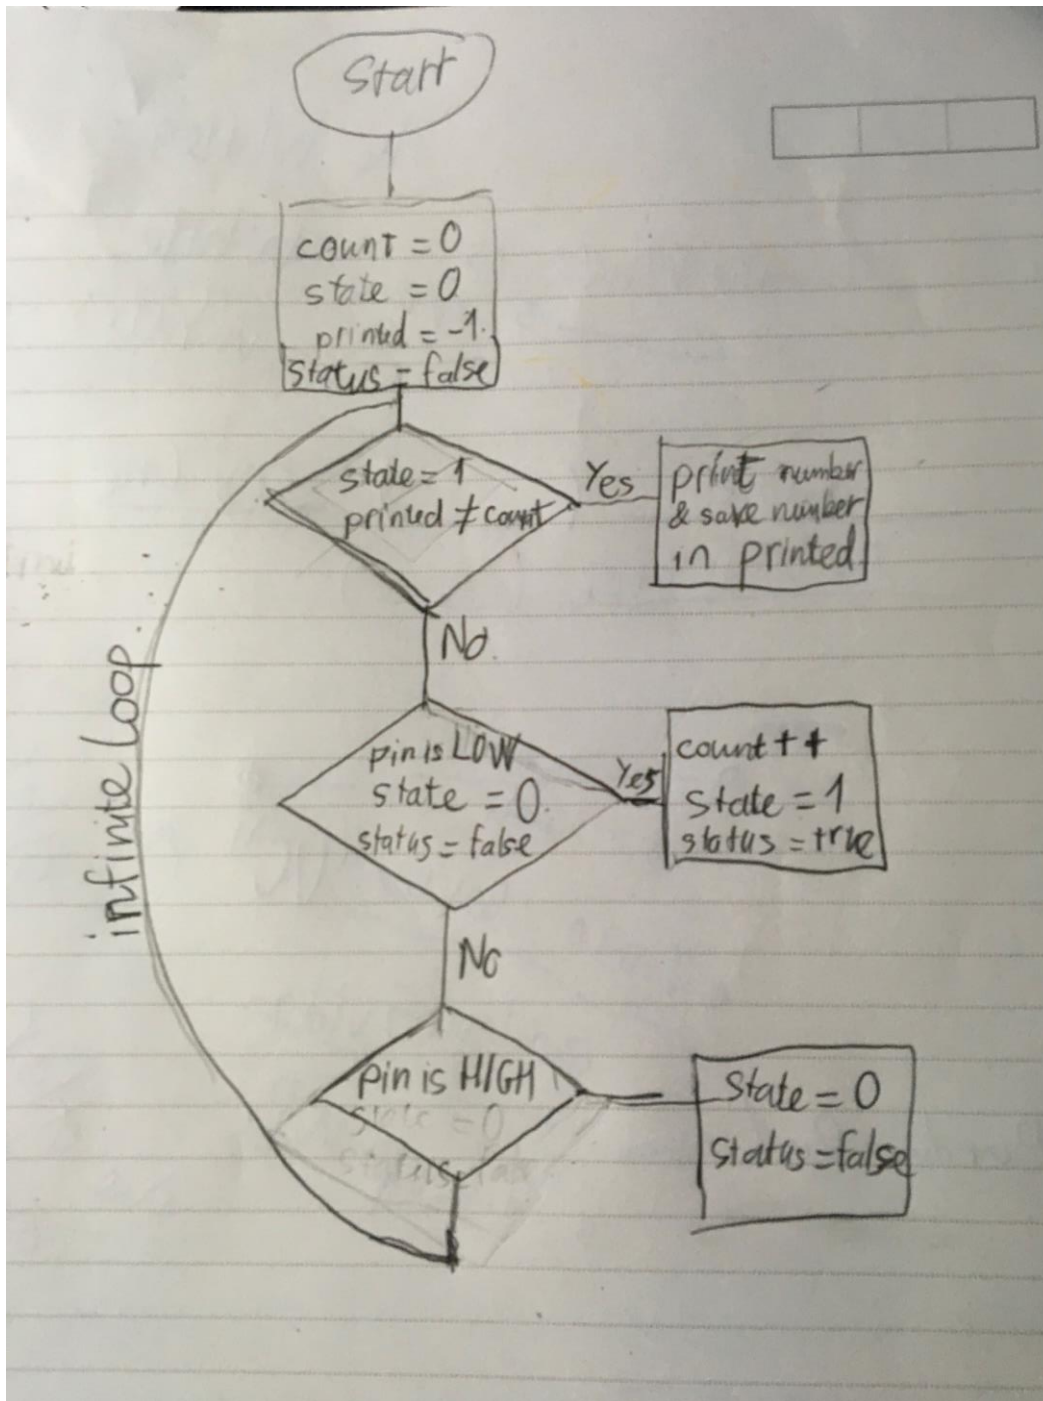 Start
count = 0
state = 0
printed = -1.
status = false
state = 1
printed ≠ count
Yes
print number
& save number
in printed
No.
pin is LOW
state = 0.
status = false
Yes
count ++
state = 1
status = true
infinite loop
No
pin is HIGH
state = 0
State = 0
status = false